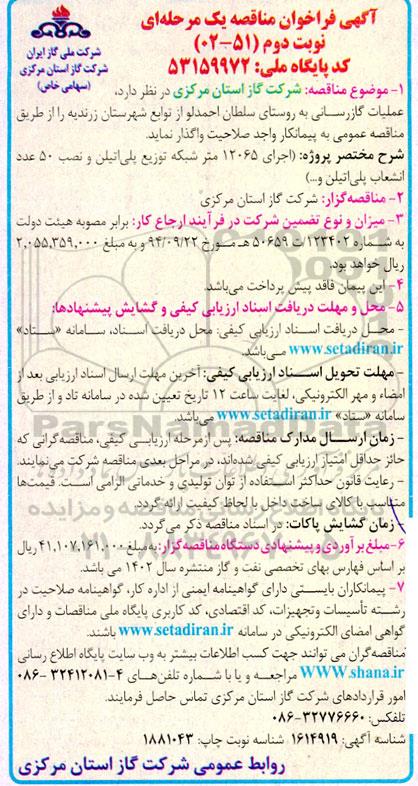 آگهی فراخوان مناقصه یک مرحله‌ای
نوبت دوم (۵۱-۰۲)
کد پایگاه ملی: ۵۳۱۵۹۹۷۲
شرکت ملی گاز ایران
شرکت گاز استان مرکزی
(سهامی خاص)
۱- موضوع مناقصه: شرکت گاز استان مرکزی در نظر دارد،
عملیات گازرسانی به روستای سلطان احمدلو از توابع شهرستان زرندیه را از طریق
مناقصه عمومی به پیمانکار واجد صلاحیت واگذار نماید.
شرح مختصر پروژه: (اجرای ۱۲۰۶۵ متر شبکه توزیع پلی‌اتیلن و نصب ۵۰ عدد
انشعاب پلی‌اتیلن و...)
۲- مناقصه‌گزار: شرکت گاز استان مرکزی
۳- میزان و نوع تضمین شرکت در فرآیند ارجاع کار: برابر مصوبه هیئت دولت
به شماره ۱۲۳۴۰۲/ت ۵۰۶۵۹ هـ مورخ ۹۴/۰۹/۲۲ و به مبلغ ۲,۰۵۵,۳۵۹,۰۰۰
ریال خواهد بود.
۴- این پیمان فاقد پیش پرداخت می‌باشد.
۵- محل و مهلت دریافت اسناد ارزیابی کیفی و گشایش پیشنهادها:
- محل دریافت اسناد ارزیابی کیفی: محل دریافت اسناد، سامانه «ستاد»
www.setadiran.ir می‌باشد.
- مهلت تحویل اسناد ارزیابی کیفی: آخرین مهلت ارسال اسناد ارزیابی بعد از
امضاء و مهر الکترونیکی، لغایت ساعت ۱۲ تاریخ تعیین شده در سامانه تاد و از طریق
سامانه «ستاد» www.setadiran.ir می‌باشد.
- زمان ارسال مدارک مناقصه: پس ازمرحله ارزیابی کیفی، مناقصه‌گرانی که
حائز حداقل امتیاز ارزیابی کیفی شده‌اند، در مراحل بعدی مناقصه شرکت می‌نمایند.
- رعایت قانون حداکثر استفاده از توان تولیدی و خدماتی الزامی است. قیمت‌ها
متناسب با کالای ساخت داخل با لحاظ کیفیت ارائه گردد.
- زمان گشایش پاکات: در اسناد مناقصه ذکر می‌گردد.
۶- مبلغ برآوردی و پیشنهادی دستگاه مناقصه گزار: به مبلغ ۴۱,۱۰۷,۱۶۱,۰۰۰ ریال
بر اساس فهارس بهای تخصصی نفت و گاز منتشره سال ۱۴۰۲ می باشد.
۷- پیمانکاران بایستی دارای گواهینامه ایمنی از اداره کار، گواهینامه صلاحیت در
رشته تأسیسات وتجهیزات، کد اقتصادی، کد کاربری پایگاه ملی مناقصات و دارای
گواهی امضای الکترونیکی در سامانه www.setadiran.ir باشند.
مناقصه‌گران می توانند جهت کسب اطلاعات بیشتر به وب سایت پایگاه اطلاع رسانی
WWW.shana.ir مراجعه و یا با شماره تلفن‌های ۴-۳۲۴۱۲۰۸۱-۰۸۶
امور قراردادهای شرکت گاز استان مرکزی تماس حاصل فرمایند.
تلفکس: ۳۲۷۷۶۶۶۰-۰۸۶
شناسه آگهی: ۱۶۱۴۹۱۹ شناسه نوبت چاپ: ۱۸۸۱۰۴۳
روابط عمومی شرکت گاز استان مرکزی